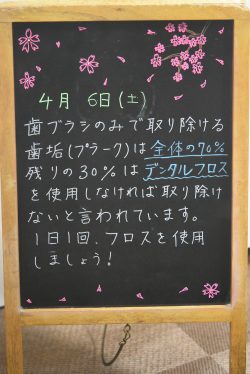 4月 6日(土)
歯ブラシのみで取り除ける
歯垢(プラーク)は全体の70%
残りの30%はデンタルフロス
を使用しなければ取り除け
ないと言われています。
1日1回、フロスを使用
しましょう!